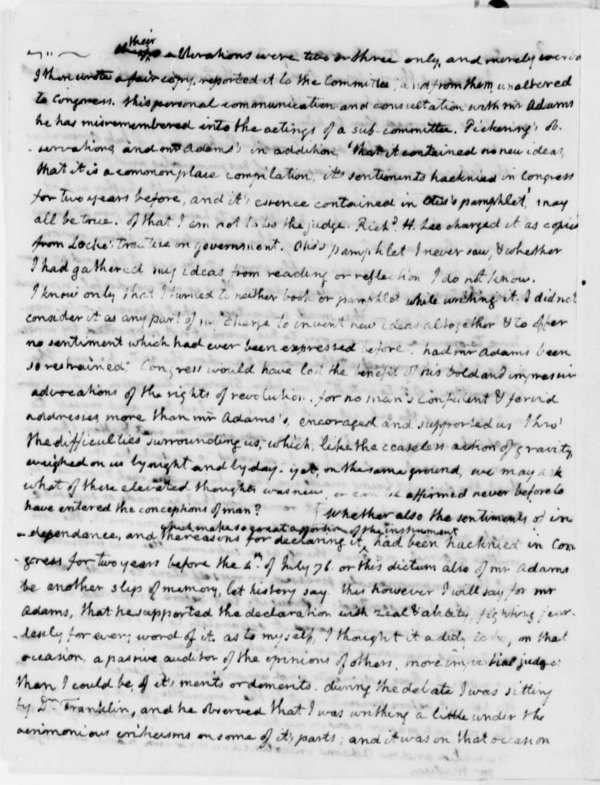 their alterations were two or three only, and merely verbal
I then wrote a fair copy, reported it to the Committee, and from them, unaltered
to Congress. this personal communication and consultation with mr Adams
he has misremembered into the actings of a sub-committee. Pickering's ob-
-servations, and mr Adams's in addition, 'that it contained no new ideas,
that it is a commonplace compilation, it's sentiments hacknied in Congress
for two years before, and it's essence contained in Otis's pamphlet,' may
all be true. of that I am not to be the judge. Richd. H. Lee charged it as copied
from Locke's treatise on government. Otis's pamphlet I never saw, & whether
I had gathered my ideas from reading or reflection I do not know.
I know only that I turned to neither book or pamphlet while writing it. I did not
consider it as any part of my charge to invent new ideas altogether & to offer
no sentiment which had ever been expressed before. had mr Adams been
so restrained, Congress would have lost the benefit of his bold and impressive
advocations of the rights of revolution. for no man's confident & fervid
addresses, more than mr Adams's, encoraged and supported us thro'
the difficulties surrounding us, which, like the ceaseless action of gravity,
weighed on us by night and by day. yet, on the same ground, we may ask
what of these elevated thoughts was new, or can be affirmed never before to
have entered the conceptions of man? [Whether also the sentiments of in-
which make so great a portion of the instrument
-dependance, and the reasons for declaring it, had been hacknied in Con-
gress for two years before the 4th. of July 76. or this dictum also of mr Adams
be another slip of memory, let history say. this however I will say for mr
Adams, that he supported the declaration with zeal & ability, fighting fear-
lesly for every word of it. as to myself, I thought it a duty to be, on that
occasion, a passive auditor of the opinions of others, more impartial judges
than I could be, of it's merits or demerits. during the debate I was sitting
by Dr. Franklin, and he observed that I was writhing a little under the
acrimonious criticisms on some of it's parts; and it was on that occasion